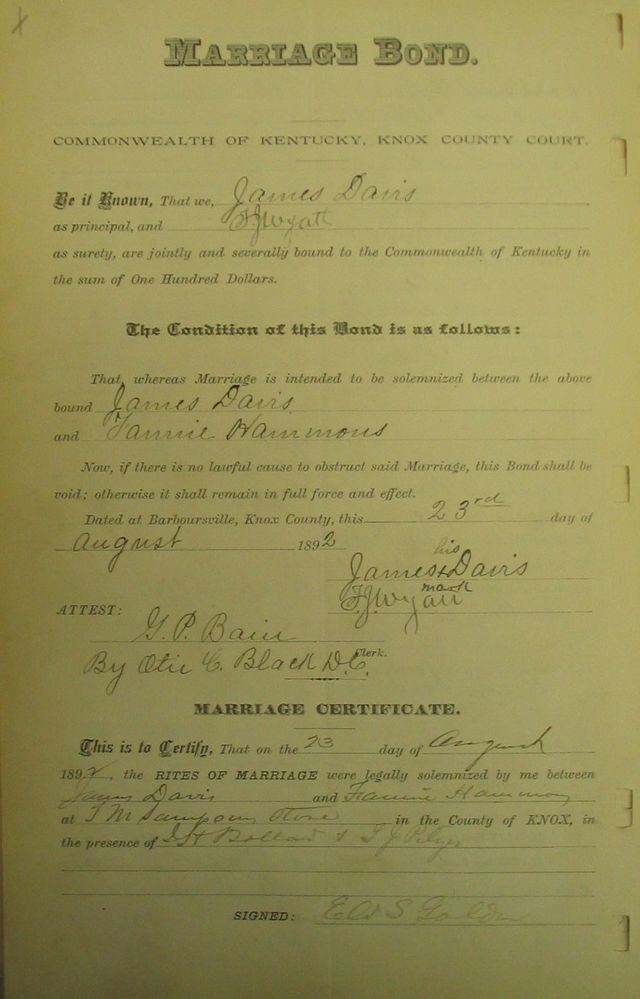 MARRIAGE BOND.
COMMONWEALTH OF KENTUCKY, KNOX COUNTY COURT.
Be it Known, That we, James Davis
as principal, and F.J. Wyatt
as surety, are jointly and severally bound to the Commonwealth of Kentucky in
the sum of One Hundred Dollars.
The Condition of this Bond is as follows:
That, whereas Marriage is intended to be solemnized between the above
bound James Davis
and Fannie Hammons
Now, if there is no lawful cause to obstruct said Marriage, this Bond shall be
void; otherwise it shall remain in full force and effect.
Dated at Barboursville, Knox County, this 23rd day of
August 1892
his
James + Davis
mark
F.J. Wyatt
ATTEST:
G. P. Bain
Clerk.
By Otis C. Black D.C.
MARRIAGE CERTIFICATE.
This is to Certify, That on the 23 day of August
1892, the RITES OF MARRIAGE were legally solemnized by me between
James Davis and Fannie Hammons
at Store in the County of KNOX, in
the presence of
SIGNED: